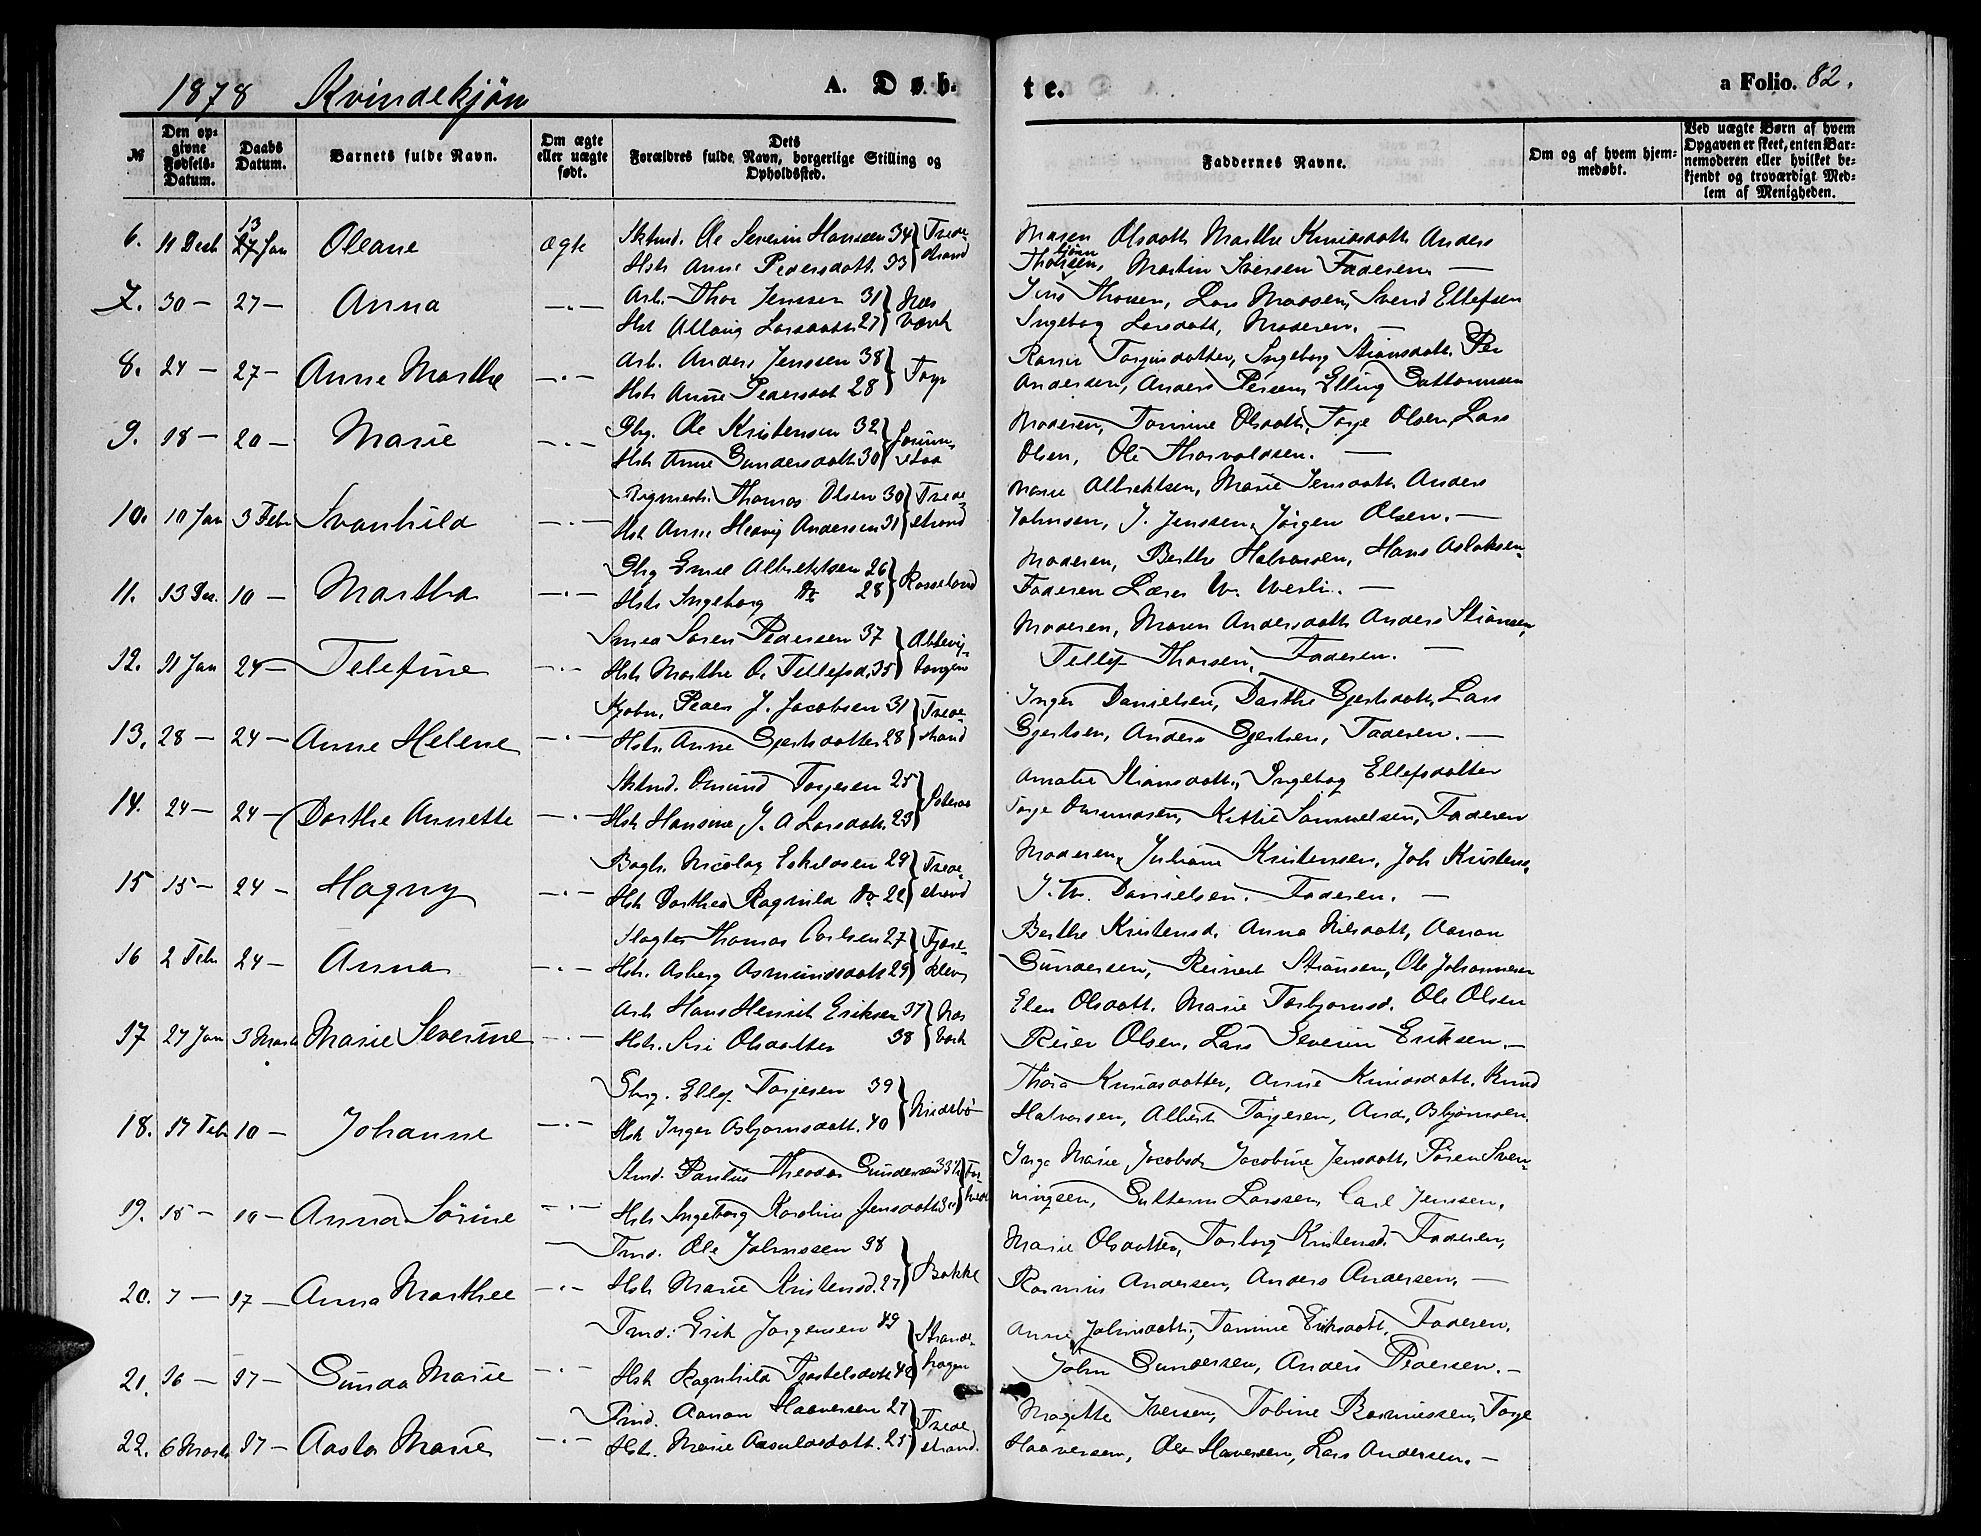 1878 Kvindekjøn A. Døb-
te. a Folio. 82.
№
Den opgivne Fødsels-Datum.
Daabs Datum.
Barnets fulde Navn.
Om ægte eller uægte født.
Dets Forældres fulde Navn, borgerlige Stilling og Opholdssted.
Faddernes Navne.
Om og af hvem hjemmedøbt.
Ved uægte Børn af hvem Opgaven er skeet, enten Barnemoderen eller hvilket bekjendt og troværdigt Medlem af Menigheden.
6. 11 Decb 13 Jan Oleane ægte Sktmd. Ole Severin Hansen 34 Tvede-
Hst. Anne Pedersdatt. 33 strand
Maren Olsdatt. Marthe Knudsdatt. Anders
Martin Iversen Faderen. —
7. 30 — 27 — Anna —"— Arb. Thor Jenssen 31 Næs
Hst. Larsdatt. 27 Værk
Jens Thorsen, Lars Svend Ellefsen
Ingeborg Larsdatt, Moderen. —
8. 24 — 27 — Anne Marthe —"— Arb. Anders Jenssen 38
Hst Anne Pedersdat 28
Ingeborg Stiansdatt. Per
Andersen, Anders Elling
9. 18 — 20 — Marie —"— Gbg. Ole Kristensen 32
Hst Anne Gundersdatt. 30
Moderen, Tomine Olsdatt, Torje Olsen, Lars
Olsen, Ole Thorvaldsen. —
10. 10 Jan 3 Febr Svanhild —"— Thomas Olsen 30 Tvede-
Hst. Anne Hedvig Andersen 31 strand
Marie Albrektsen, Marie Jensdatt. Anders
Johnsen, J. Jenssen, Jørgen Olsen. —
11. 13 10 — Martha —"— Gbg Albrektsen 26 Rosseland
Hst. Ingeborg Do 28
Moderen, Berthe Halvorsen, Hans Aslaksen
Faderen Lærer W.
12. 31 Jan 24 — Telefine —"— Smed Søren Pedersen 37
Hst. Marthe O. Tellefsd. 35
Moderen, Maren Andersdatt. Anders Stiansen,
Tellef Thorsen, Faderen. —
13. 28 — 24 — Anne Helene —"— Peder J. Jacobsen 31 Tvede-
Hst. Anne Gjertsdatter 28 strand
Inger Danielsen, Dorthe Gjertsdatt, Lars
Gjertsen, Anders Gjertsen, Faderen. —
14. 24 — 24 — Dorthe Annette —"— Sktmd. Torjesen 25
Hst Hansine J. A Larsdatt. 23
Amalie Stiansdatt, Ingeborg Ellefsdatter
Torje Samuelsen, Faderen
15 15 — 24 — Magny —"— Nicolay 29 Tvede-
Hst. Dorthea Ragnild Do 22 strand
Moderen, Juliane Kristensen, Joh Kristens.
Danielsen. Faderen. —
16 2 Febr 24 — Anna —"— Slagter Thomas 27
Hst. Asberg Asmundsdatt. 29
Berthe Kristensd. Anna Nilsdatt, Aanon
Gundersen, Reinert Stiansen, Ole Johannesen
17 27 Jan 3 Marts Marie Severine —"— Arb Hans Henrik Eriksen 37 Næs
Hst. Siri Olsdatter 38 Værk
Elen Olsdatt. Marie Torbjornsd. Ole Olsen
Reier Olsen, Lars Severin Eriksen. —
18. 17 Febr 10 — Johanne —"— Gbg. Ellef Torjesen 39
Hst Inger Osbjornsdatt. 40
Thora Knudsdatter, Anne Knudsdatt. Knud
Halvorsen, Albert Torjesen, And. Osbjornsen.
19. 15 — 10 — Anna Sørine —"— Theodor Gundersen
Hst Ingeborg Karoline Jensdatt.
Marie Jacobsd Jacobine Jensdatt, Søren Sven-
ningsen, Larssen, Carl Jenssen.
20. 7 — 17 — Anna Marthee —"— Tmd. Ole Johnssen 38 Bakke
Hst Marie Kristensd. 27
Marie Olsdatter, Torborg Kristensd. Faderen,
Rasmus Andersen, Anders Andersen. —
21. 16 — 17 — Gunda Marie —"— Tmd. Erik Jørgensen 49
Hst Ragnhild
Anne Johnsdatt, Tomine Eriksdatt, Faderen.
John Gundersen, Anders Pedersen. —
22. 6 Marts 17 — Aasta Marie —"— Tmd. Aanon Haaversen 27 Tvede-
Hst. Marie 25 strand.
Iversen, Tobine Rasmussen, Torje
Haaversen, Ole Haversen, Lars Andersen. —